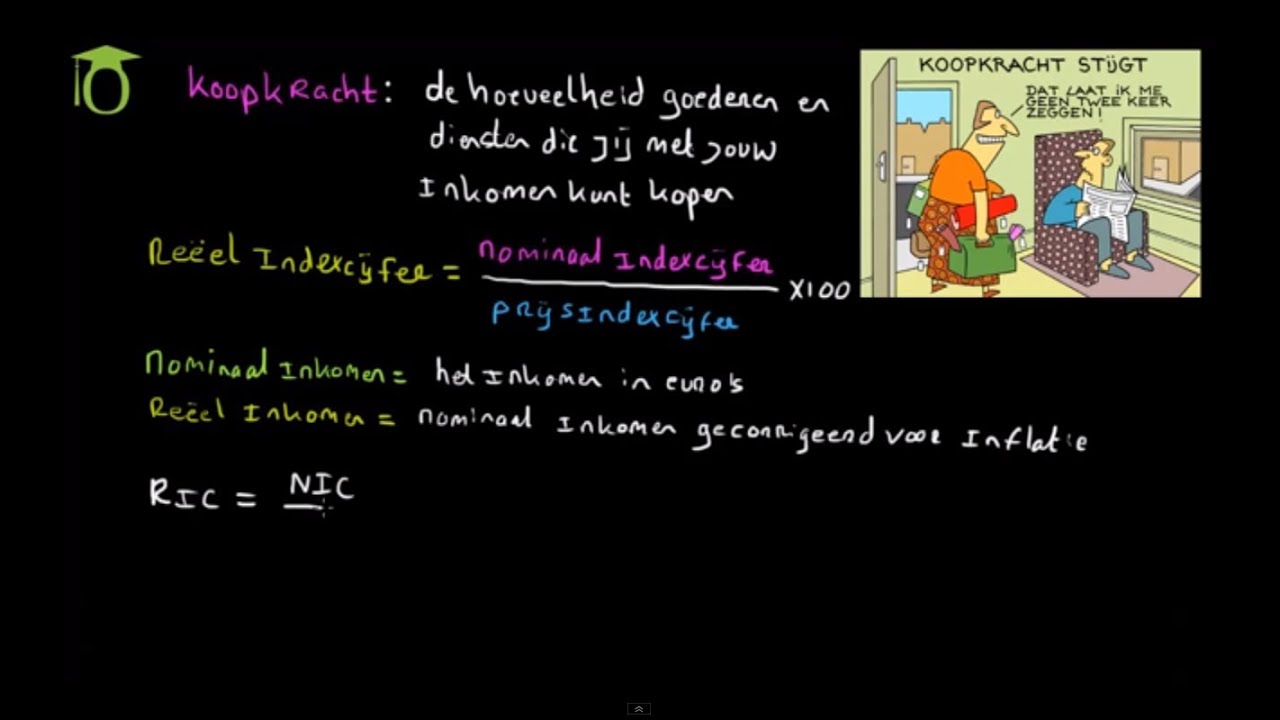 Koopkracht: de hoeveelheid goederen en
diensten die jij met jouw
Inkomen kunt kopen
Reëel Indexcijfer = nominaal Indexcijfer
prijsindexcijfer
x100
nominaal Inkomen = het Inkomen in euro's
Reëel Inkomen = nominaal Inkomen gecorrigeerd voor Inflatie
RIC = NIC
KOOPKRACHT STIJGT
DAT LAAT IK ME
GEEN TWEE KEER
ZEGGEN!